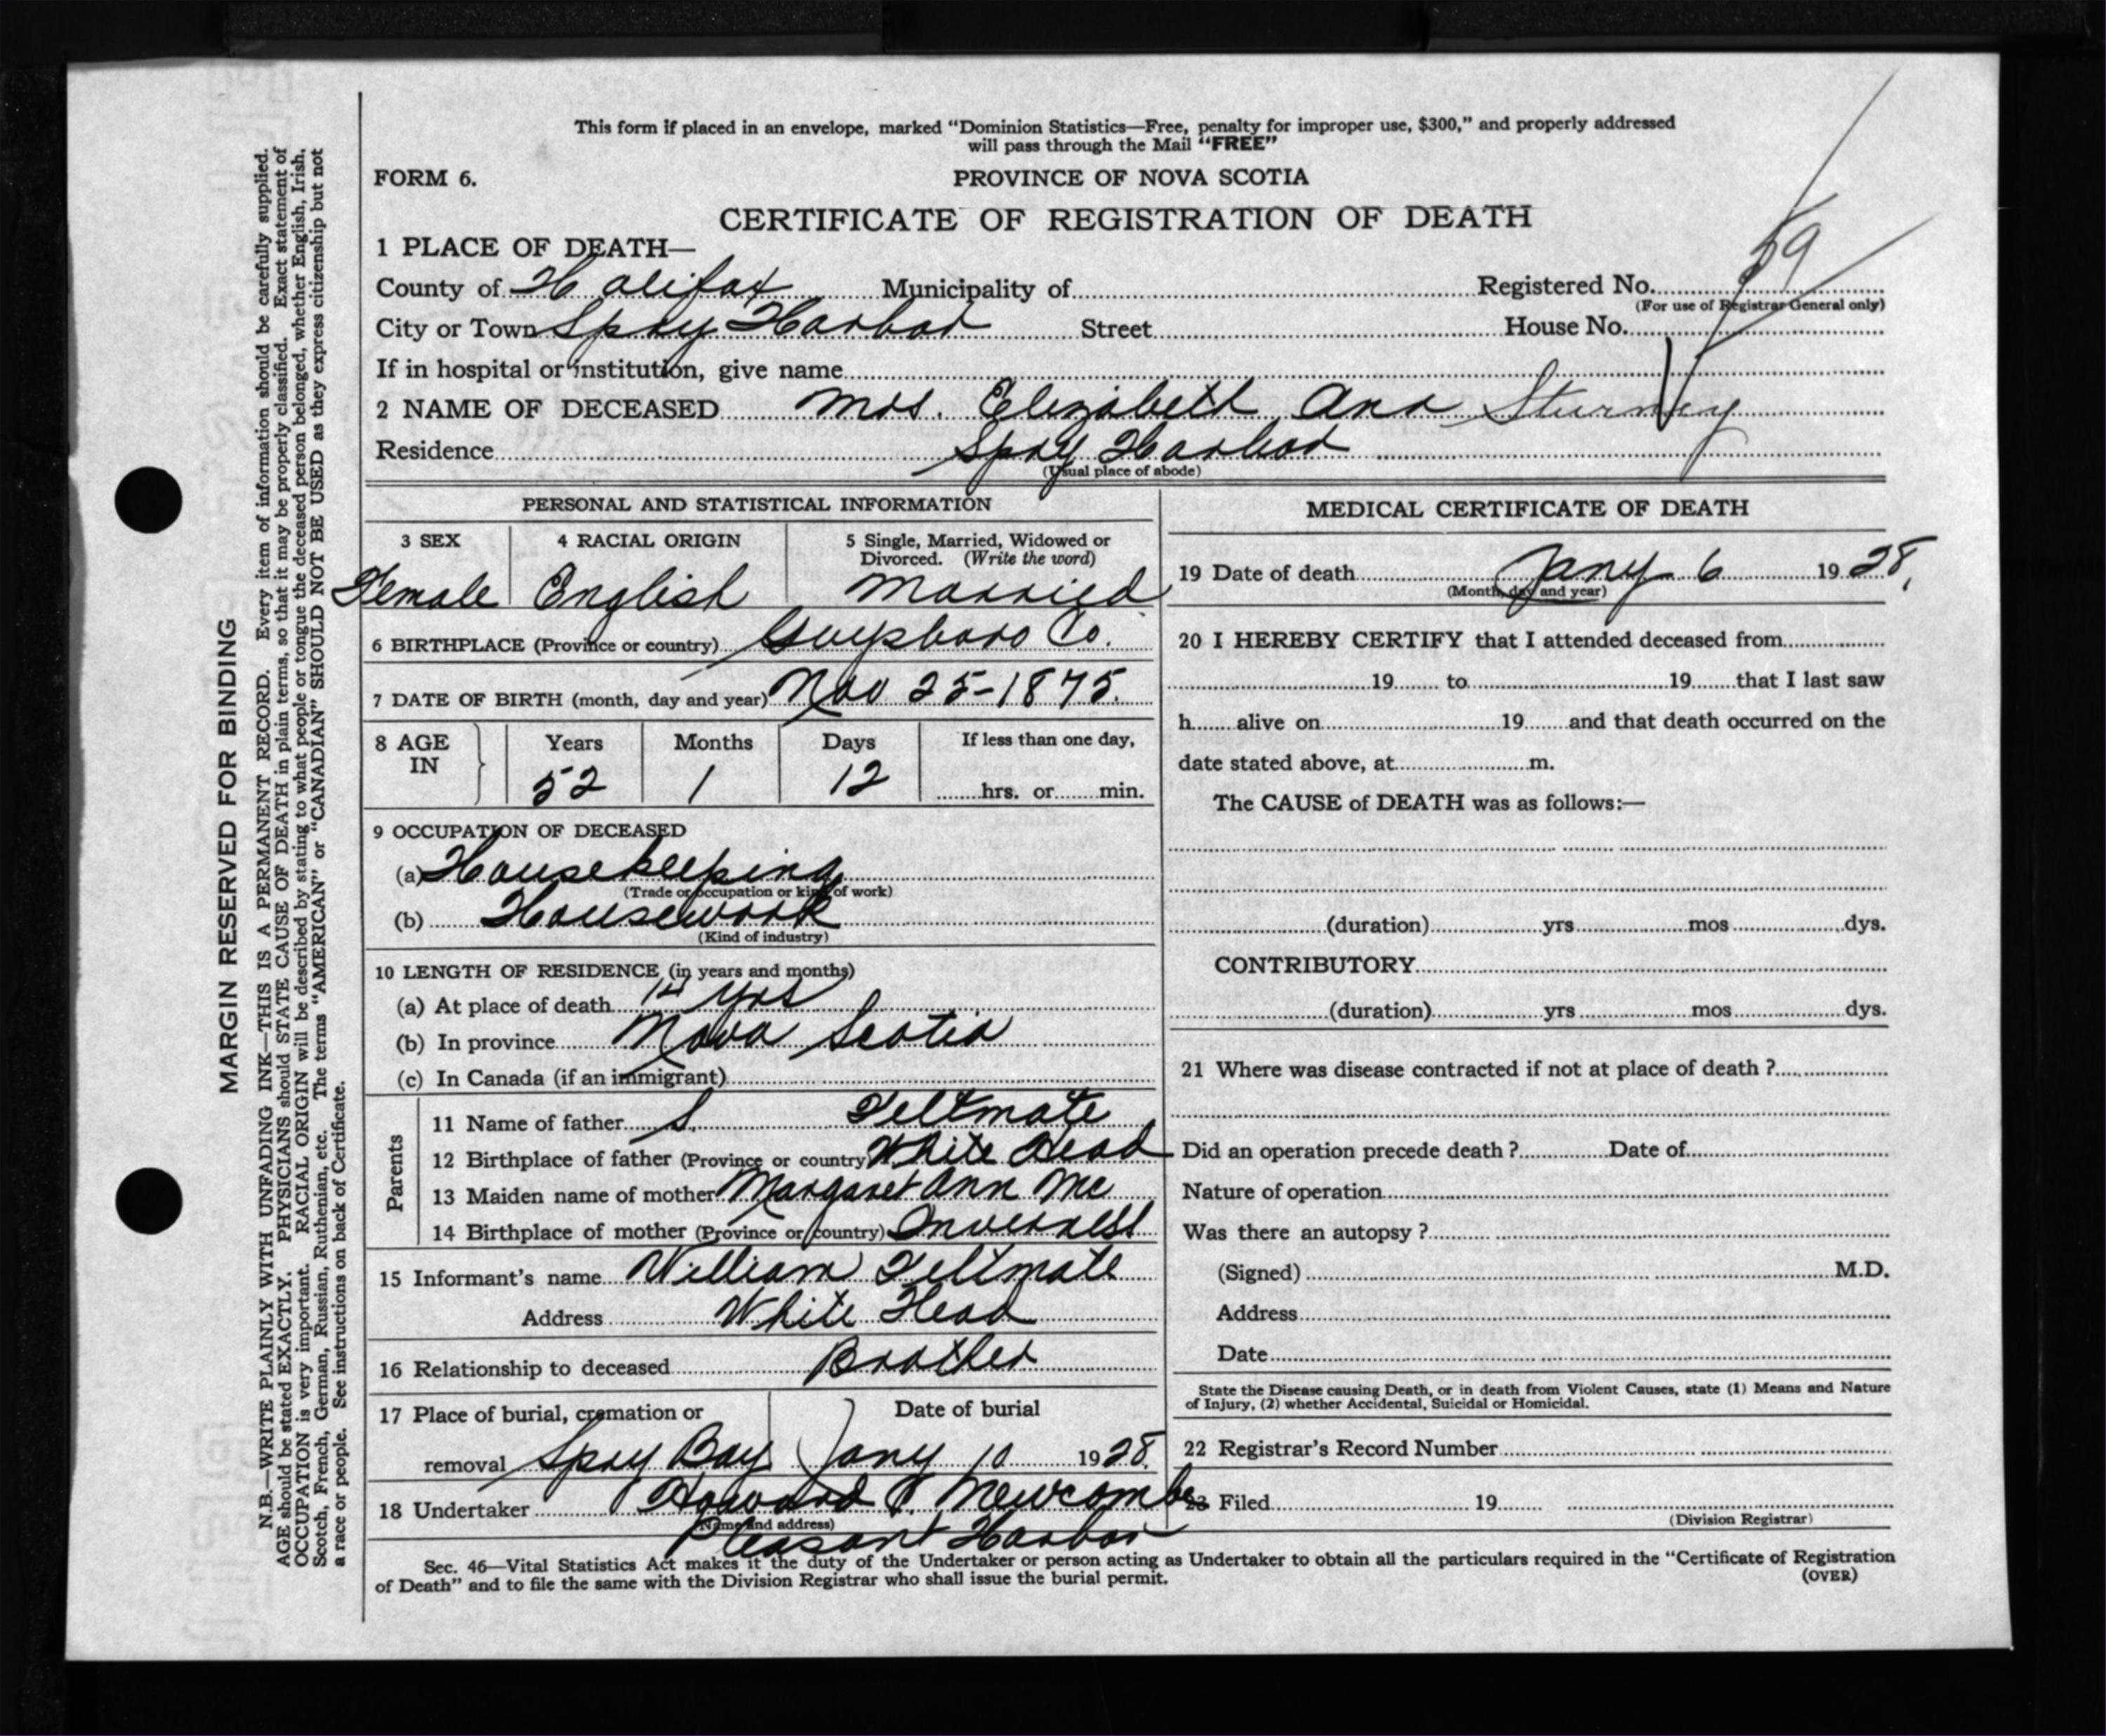 This form if placed in an envelope, marked "Dominion Statistics—Free, penalty for improper use, $300," and properly addressed
will pass through the Mail "FREE"
FORM 6.
PROVINCE OF NOVA SCOTIA
CERTIFICATE OF REGISTRATION OF DEATH
1 PLACE OF DEATH—
County of Halifax Municipality of Registered No. 59
(For use of Registrar General only)
City or Town Spry Harbor Street House No.
If in hospital or institution, give name
2 NAME OF DECEASED Mrs. Elizabeth Ann
Residence Spry Harbor
(Usual place of abode)
PERSONAL AND STATISTICAL INFORMATION
3 SEX 4 RACIAL ORIGIN 5 Single, Married, Widowed or
Divorced. (Write the word)
Female English Married
6 BIRTHPLACE (Province or country) Guysboro Co.
7 DATE OF BIRTH (month, day and year) Nov 25-1875.
8 AGE Years Months Days If less than one day,
IN 52 1 12 hrs. or min.
9 OCCUPATION OF DECEASED
(a) Housekeeping
(Trade or occupation or kind of work)
(b) Housework
(Kind of industry)
10 LENGTH OF RESIDENCE (in years and months)
(a) At place of death 14 yrs
(b) In province Nova Scotia
(c) In Canada (if an immigrant)
Parents
11 Name of father S. Feltmate
12 Birthplace of father (Province or country) White Head
13 Maiden name of mother Margaret Ann Mc
14 Birthplace of mother (Province or country) Inverness
15 Informant's name William Feltmate
Address White Head
16 Relationship to deceased Brother
17 Place of burial, cremation or Date of burial
removal Spry Bay Jany 10 1928.
18 Undertaker Howard P. Newcombe
(Name and address)
Pleasant Harbor
MEDICAL CERTIFICATE OF DEATH
19 Date of death Jany 6 1928.
(Month, day and year)
20 I HEREBY CERTIFY that I attended deceased from
19 to 19 that I last saw
h alive on 19 and that death occurred on the
date stated above, at m.
The CAUSE of DEATH was as follows:—
(duration) yrs mos dys.
CONTRIBUTORY
(duration) yrs mos dys.
21 Where was disease contracted if not at place of death ?
Did an operation precede death ? Date of
Nature of operation
Was there an autopsy ?
(Signed) M.D.
Address
Date
State the Disease causing Death, or in death from Violent Causes, state (1) Means and Nature
of Injury, (2) whether Accidental, Suicidal or Homicidal.
22 Registrar's Record Number
23 Filed 19
(Division Registrar)
Sec. 46—Vital Statistics Act makes it the duty of the Undertaker or person acting as Undertaker to obtain all the particulars required in the "Certificate of Registration
of Death" and to file the same with the Division Registrar who shall issue the burial permit.
(OVER)
MARGIN RESERVED FOR BINDING
N.B.—WRITE PLAINLY WITH UNFADING INK—THIS IS A PERMANENT RECORD. Every item of information should be carefully supplied.
AGE should be stated EXACTLY. PHYSICIANS should STATE CAUSE OF DEATH in plain terms, so that it may be properly classified. Exact statement of
OCCUPATION is very important. RACIAL ORIGIN will be described by stating to what people or tongue the deceased person belonged, whether English, Irish,
Scotch, French, German, Russian, Ruthenian, etc. The terms "AMERICAN" or "CANADIAN" SHOULD NOT BE USED as they express citizenship but not
a race or people. See instructions on back of Certificate.